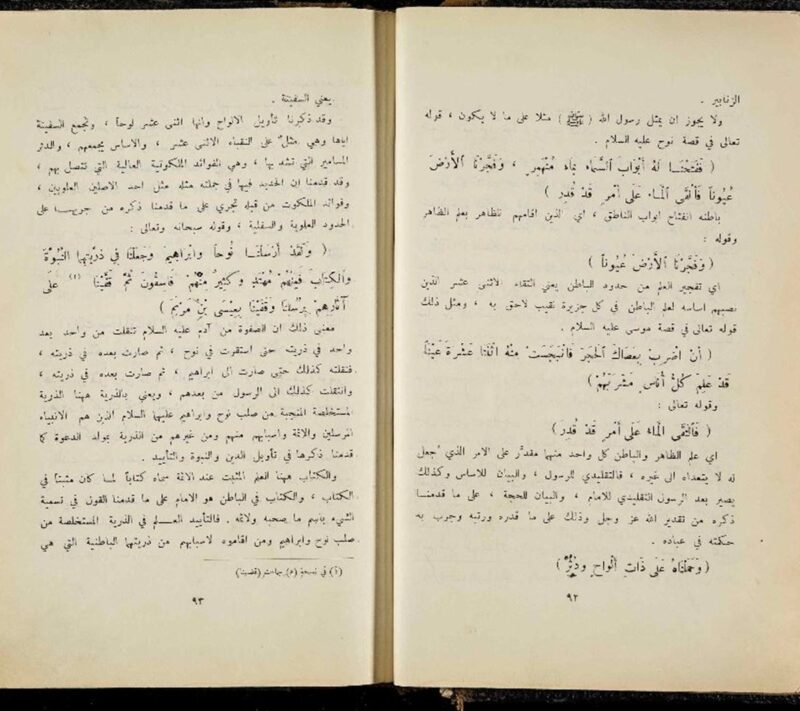 الزنابير .
ولا يجوز ان يمثل رسول الله ( ﷺ ) مثلا على ما لا يكون ، قوله
تعالى في قصة نوح عليه السلام .
( فَفَتَحْنَا لَهُ أَبْوَابَ السَّمَاءِ بِمَاءٍ مُنْهَمِرٍ ، وَفَجَّرْنَا الأَرْضَ
عُيُوناً فَأَلْتَقَى المَاءُ عَلَى أَمْرٍ قَدْ قُدِرَ )
باطنه انفتاح ابواب الناطق ، اي الذين اقامهم للظاهر بعلم الظاهر
وقوله :
( وَفَجَّرْنَا الأَرْضَ عُيُوناً )
اي تفجير العلم من حدود الباطن يعني النقباء الاثنى عشر الذين
نصبهم اساسه لعلم الباطن في كل جزيرة نقيب لاحق به ، ومثل ذلك
قوله تعالى في قصة موسى عليه السلام .
( أَنْ اضْرِبْ بِعَصَاكَ الحَجَرَ فَانْبَجَسَتْ مِنْهُ اثْنَتَا عَشْرَةَ عَيْناً
قَدْ عَلِمَ كُلُّ أُنَاسٍ مَشْرَبَهُمْ )
وقوله تعالى :
( فَالْتَقَى المَاءُ عَلَى أَمْرٍ قَدْ قُدِرَ )
اي علم الظاهر والباطن كل واحد منهما مقدرٌ على الامر الذي جُعل
له لا يتعداه الى غيره ، فالتقليدي للرسول ، والبيان للاساس وكذلك
يصير بعد الرسول التقليدي للامام ، والبيان للحجة ، على ما قدمنا
ذكره من تقدير الله عز وجل وذلك على ما قدره ورتبه وجرب به
حكمته في عباده .
( وَحَمَلْنَاهُ عَلَى ذَاتِ أَلْوَاحٍ وَدُسُرٍ )
٩٢
يعني السفينة .
وقد ذكرنا تأويل الالواح وانها اثنى عشر لوحاً ، وتجمع السفينة
اياها وهي مثلٌ على النقباء الاثنى عشر ، والاساس يجمعهم ، والدسر
المسامير التي تشد بها ، وهي الفوائد الملكوتية العالية التي تتصل بهم ،
وقد قدمنا ان الحديد فيها في جملته مثله مثل احد الاصلين العلويين ،
وفوائد الملكوت من قبله تجري على ما قدمنا ذكره من جريها على
الحدود العلوية والسفلية ، وقوله سبحانه وتعالى :
( وَلَقَدْ أَرْسَلْنَا نُوحاً وَابْرَاهِيمَ وَجَعَلْنَا فِي ذُرِّيَّتِهِمَا النُّبُوَّةَ
وَالكِتَابَ فَمِنْهُمْ مُهْتَدٍ وَكَثِيرٌ مِنْهُمْ فَاسِقُونَ ثُمَّ قَفَّيْنَا (١) عَلَى
آثَارِهِمْ بِرُسُلِنَا وَقَفَّيْنَا بِعِيسَى بْنِ مَرْيَمَ )
معنى ذلك ان الصفوة من آدم عليه السلام تنقلت من واحد بعد
واحد في ذريته حتى استقرت في نوح ، ثم صارت بعده في ذريته ،
فتنقلت كذلك حتى صارت الى ابراهيم ، ثم صارت بعده في ذريته ،
وانتقلت كذلك الى الرسول من بعدهم ، ويعني بالذرية ههنا الذرية
المستخلصة المنتجبة من صلب نوح وابراهيم عليهما السلام الذين هم الانبياء
المرسلين والائمة واسبابهم منهم ومن غيرهم من الذرية بمولد الدعوة كما
قدمنا ذكرها في تأويل الدين والنبوة والتأييد .
والكتاب ههنا العلم المثبت عند الائمة سماه كتاباً لما كان مثبتاً في
الكتاب ، والكتاب في الباطن هو الامام على ما قدمنا القول في تسمية
الشيء باسم ما صحبه ولائمه . فالتأييد العـــلم في الذرية المستخلصة من
صلب نوح وابراهيم ومن اقاموه لاسبابهم من ذريتهما الباطنية التي هي
(١) في نسخة (م)
٩٣